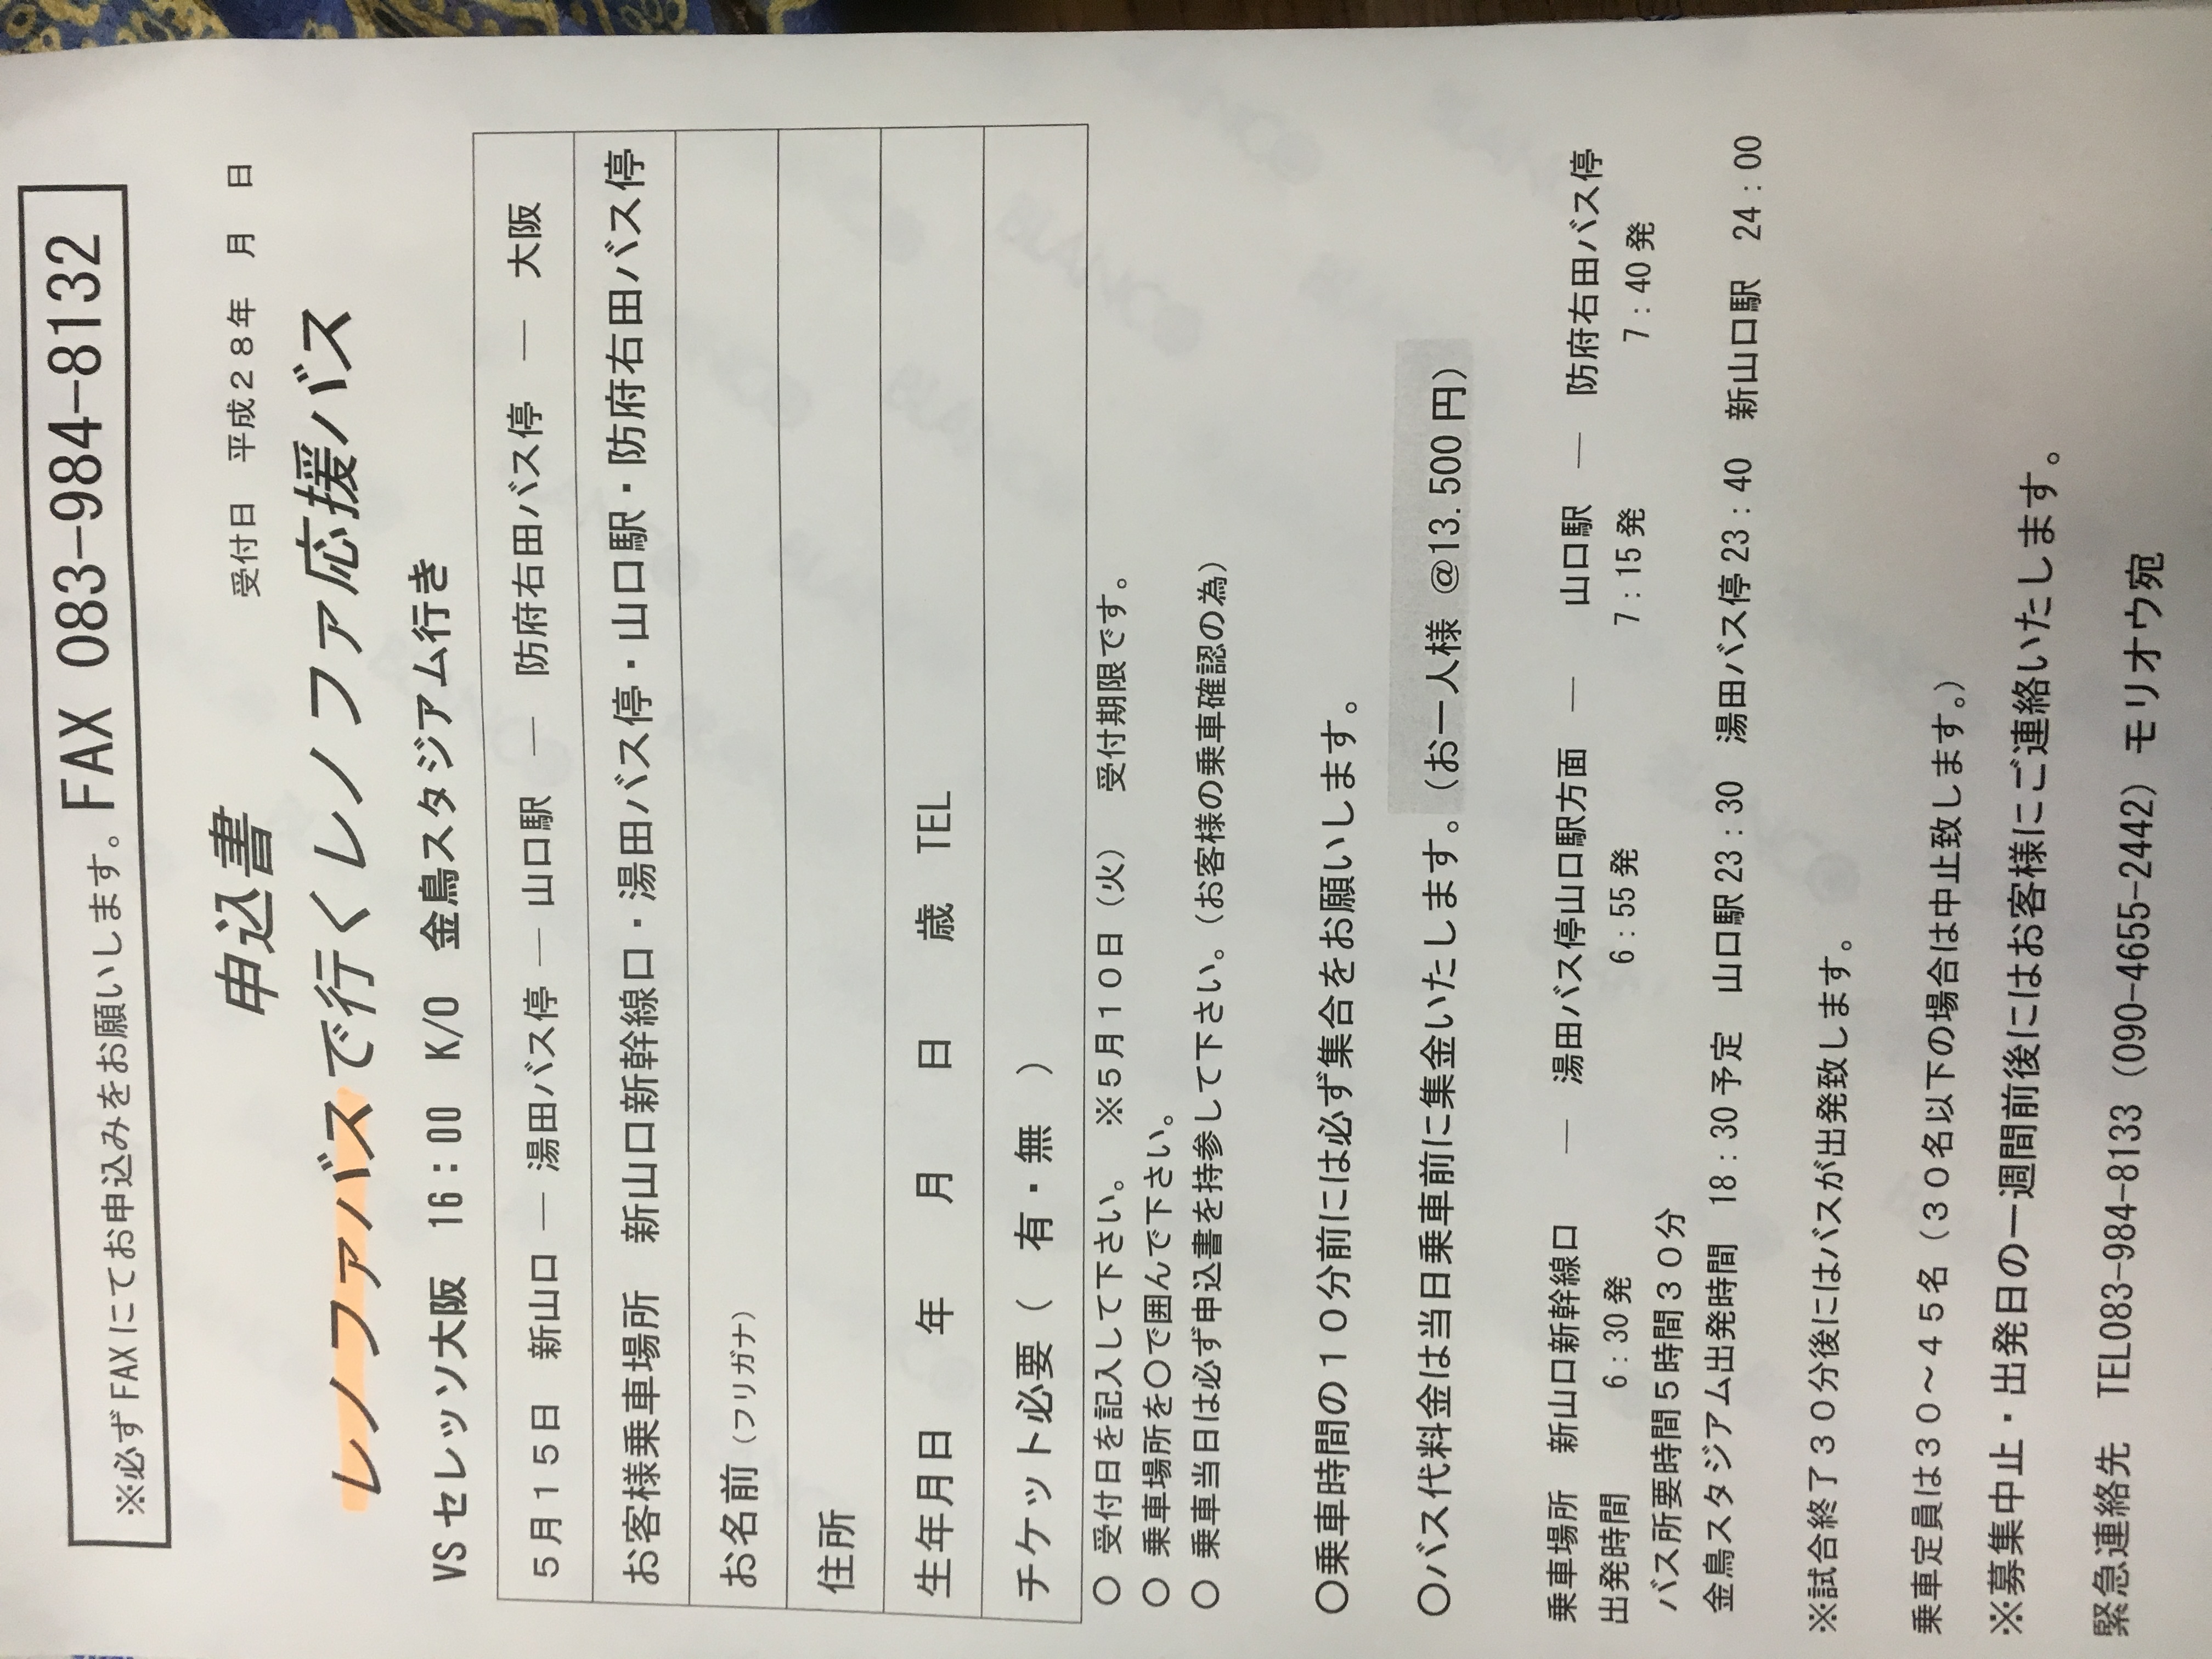 ※必ずFAXにてお申込みをお願いします。FAX 083-984-8132
受付日　平成２８年　月　日
申込書
レノファバスで行くレノファ応援バス
VSセレッソ大阪　16：00　K/O　金鳥スタジアム行き
５月１５日　新山口 ― 湯田バス停 ― 山口駅　―　防府右田バス停　―　大阪
お客様乗車場所　新山口新幹線口・湯田バス停・山口駅・防府右田バス停
お名前（フリガナ）
住所
生年月日　　年　　月　　日　　歳　TEL
チケット必要（　有・無　）
○ 受付日を記入して下さい。　※５月１０日（火）　受付期限です。
○ 乗車場所を○で囲んで下さい。
○ 乗車当日は必ず申込書を持参して下さい。（お客様の乗車確認の為）
○乗車時間の１０分前には必ず集合をお願いします。
○バス代料金は当日乗車前に集金いたします。（お一人様 @13.500円）
乗車場所　新山口新幹線口　―　湯田バス停山口駅方面　―　山口駅　―　防府右田バス停
出発時間　6：30発　6：55発　7：15発　7：40発
バス所要時間５時間３０分
金鳥スタジアム出発時間　18：30予定　山口駅23：30　湯田バス停23：40　新山口駅　24：00
※試合終了３０分後にはバスが出発致します。
乗車定員は３０～４５名（３０名以下の場合は中止致します。）
※募集中止・出発日の一週間前後にはお客様にご連絡いたします。
緊急連絡先　TEL083-984-8133（090-4655-2442）モリオウ宛